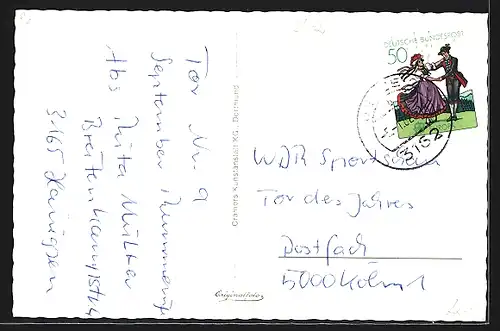 Tor Nr. 9
September
Abs Rita Müller
Breitenkampstr 4
3165 Hänigsen
Cramers Kunstanstalt KG, Dortmund
Originalfoto
DEUTSCHE BUNDESPOST
50
3162
WDR Sportschau
Tor des Jahres
Postfach
5000 Köln 1